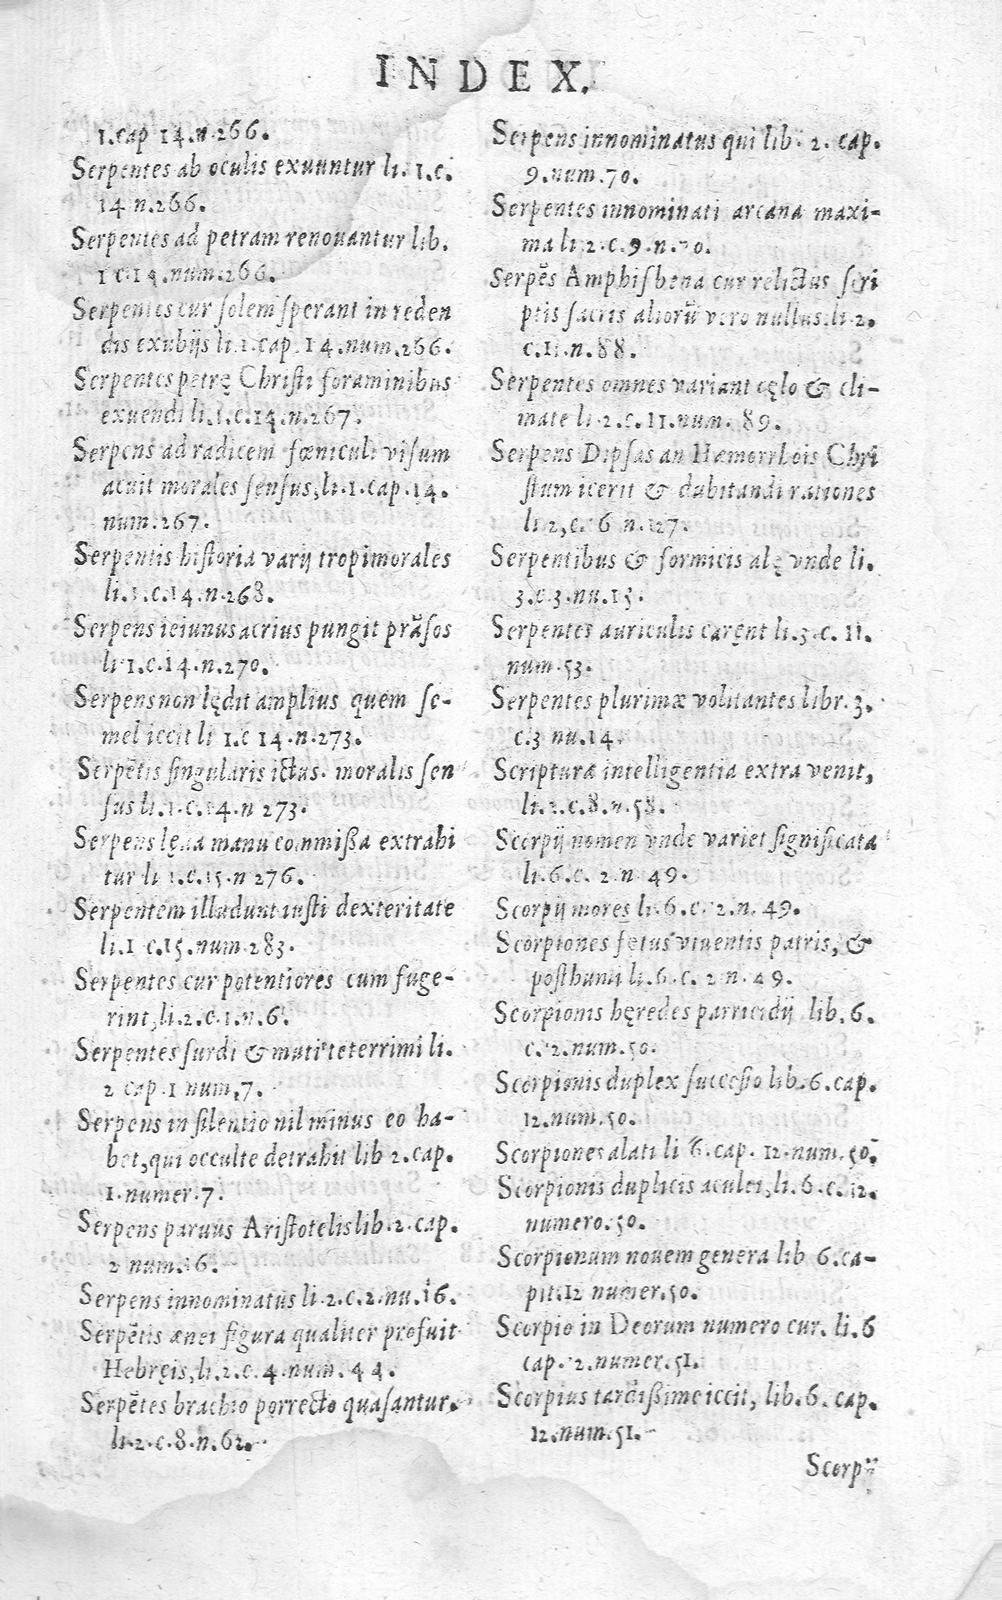 INDEX.
1.cap 14.n.266.
Serpentes ab oculis exuuntur li. 1.c.
14 n.266.
Serpentes ad petram renouantur lib.
1 c.14.num.266.
Serpentes cur ſolem ſperant in reden
dis exubijs li.1.cap. 14.num.266.
Serpentes petrę Chriſti foraminibus
exuendi li.1.c.14.n.267.
Serpens ad radicem fœniculi viſum
acuit morales ſenſus, li.1.cap.14.
num.267.
Serpentis hiſtoria varij tropimorales
li.1.c.14.n.268.
Serpens ieiunus acrius pungit prãſos
li 1.c.14.n.270.
Serpens non lędit amplius quem ſe-
mel iecit li 1.c 14.n.273.
Serpẽtis ſingularis ictus. moralis ſen
ſus li.1.c.14.n 273.
Serpens manu commiſſa extrahi
tur li 1.c.15.n 276.
Serpentem illudunt iuſti dexteritate
li.1 c.15.num.283.
Serpentes cur potentiores cum fuge-
rint, li.2.c.1.n.6.
Serpentes ſurdi & muti teterrimi li.
2 cap.1 num.7.
Serpens in ſilentio nil minus eo ha-
bet, qui occulte detrahit lib 2.cap.
1.numer.7.
Serpens paruus Ariſtotelis lib.2.cap.
2 num.16.
Serpens innominatus li.2.c.2.nu.16.
Serpẽtis ænei figura qualiter profuit
Hebręis, li.2.c.4.num.44.
Serpẽtes brachio porrecto quaſantur.
li.2.c.8.n.62.
Serpens innominatus qui lib. 2. cap.
9.num.70.
Serpentes innominati arcana maxi-
ma li.2.c.9.n.70.
Serpẽs Amphiſbena cur relictus ſcri
ptis ſacris aliorũ vero nullus.li.2.
c.11.n.88.
Serpentes omnes variant cęlo & cli-
mate li.2.c.11.num. 89.
Serpens Dipſas an Hæmorrhois Chri
ſtum icerit & dubitandi rationes
li 2,c. 6 n.127.
Serpentibus & formicis alę vnde li.
3.c.3.nu.15.
Serpentes auriculis carent li.3.c. 11.
num.53.
Serpentes plurimæ volitantes libr.3.
c.3 nu.14.
Scripturæ intelligentia extra venit,
li.2.c.8.n.58.
Scorpij nomen vnde variet ſignificata
li.6.c. 2.n 49.
Scorpij mores li.6.c.12.n.49.
Scorpiones fętus viuentis patris, &
poſthumi li.6.c. 2 n.49.
Scorpionis hęredes parricidij lib.6.
c.12.num.50.
Scorpionis duplex ſucceſſio lib.6.cap.
12.num.50.
Scorpiones alati li 6.cap. 12.num.50.
Scorpionis duplicis aculei, li.6.c.12.
numero.50.
Scorpionum nouem genera lib 6.ca-
pit.12 numer.50.
Scorpio in Deorum numero cur. li.6
cap.12.numer.51.
Scorpius tardiſſime iecit, lib.6. cap.
12.num.51.
Scorpij